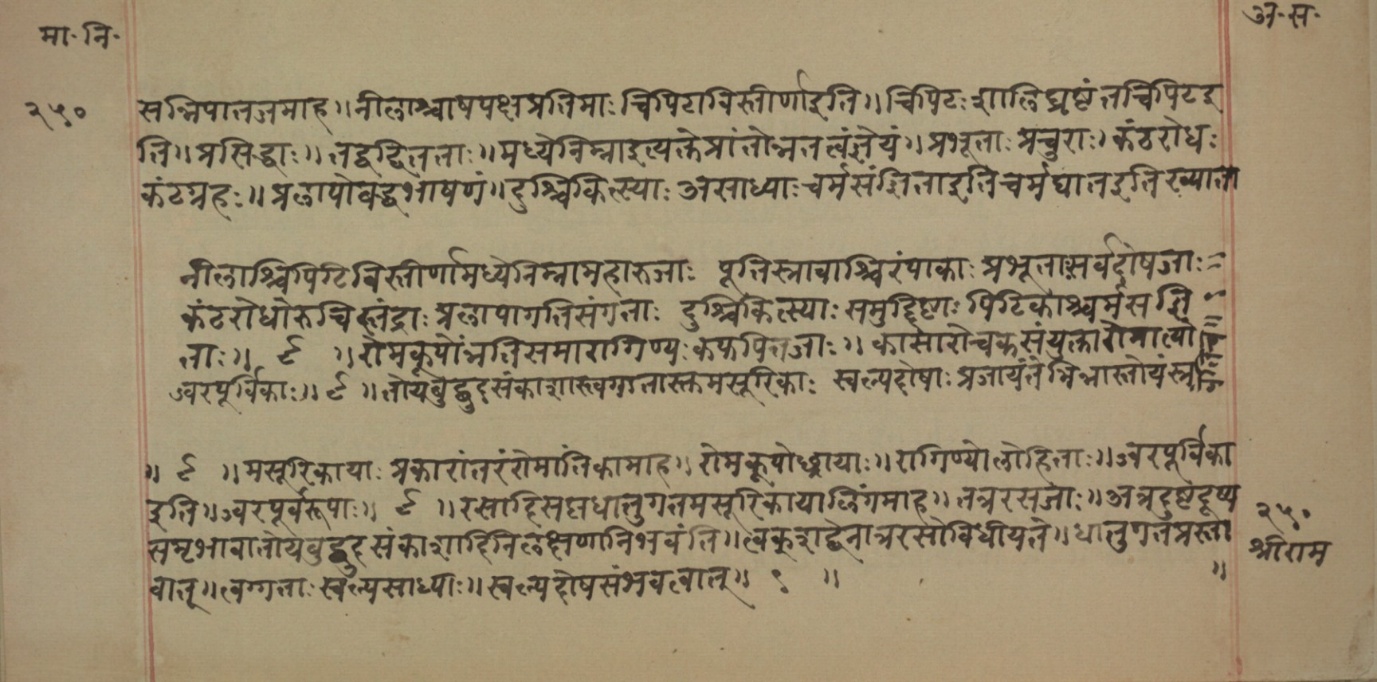 मा॰ नि॰
अ॰ स॰
२५०
सन्निपातजमाह॥नीलाश्चाषपक्षप्रतिमाः चिपिटाविस्तीर्णाइति॥चिपिटः शालिघ्रृष्टं तच्चिपिटइ
ति॥प्रसिद्धाः॥तद्वद्विततताः॥मध्येनिम्नाइत्यक्तेप्रांतोन्नतत्वंज्ञेयं॥प्रभूताः प्रचुराः॥कंठरोधः
कंठग्रहः॥प्रलापोबद्धभाषणं॥दुश्चिकित्स्याः असाध्याः चर्मसंज्ञिताइतिचर्मघातइतिख्याता
नीलाश्चिपिटिविस्तीर्णामध्येनिम्नामहारुजाः पूतिस्रावाश्चिरंपाकाः प्रभूताःसर्वदोषजाः
कंठरोधोरुचिस्तंद्राः प्रलापागतिसंगताः दुश्चिकित्स्याः समुद्दिष्टाः पिटिकाश्चर्मसंज्ञि
ताः॥ ९ ॥रोमकूपोंन्नतिसमारागिण्यः कफपित्तजाः॥कासारोचकसंयुक्तारोमांत्यो
ज्वरपूर्विकाः॥९॥तोयबुद्बुदसंकाशास्त्वग्गतास्तमसूरिकाः स्वल्पदोषाः प्रजायंतेभिन्नास्तोयंस्र
॥ ९ ॥मसूरिकायाः प्रकारांतरंरोमांतिकामाह॥रोमकूपोछ्रायाः॥रागिण्योलोहिताः॥ज्वरपूर्विका
इति॥ज्वरपूर्वरूपाः॥ ९ ॥रसाहिसप्तधातुगतमसूरिकायालिंगमाह॥तत्ररसजाः॥अत्रदुष्टदूष्य
सप्रभावातोयबुद्बुदसंकाशाहिनिलक्षणानिभवंति॥त्वक्शद्वेनात्ररसोविधीयते॥धातुगतप्रस्ता
वात्॥त्वग्गताः स्वल्पसाध्याः॥स्वल्पदोषसंभवत्वात्॥ ९ ॥ ॥
२५०
श्रीराम